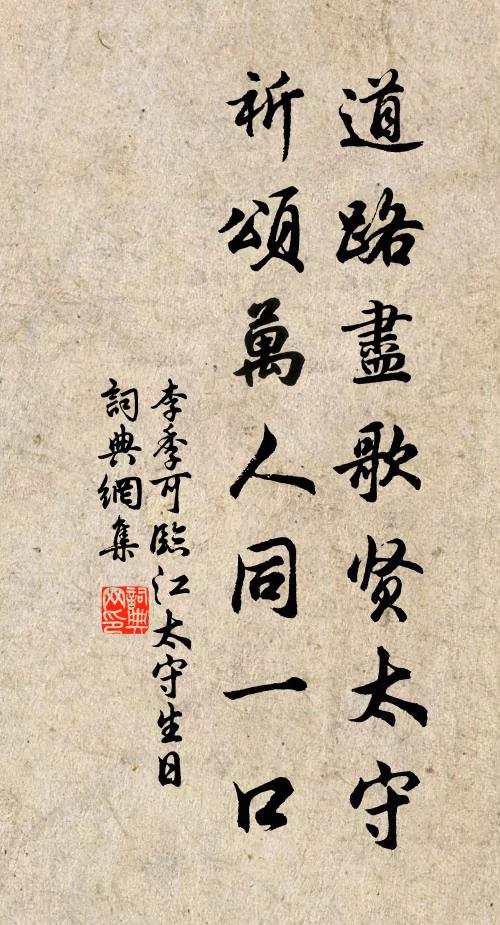 道路盡歌贤太守
祈頌萬人同一口
李季可臨江太守生日
詞典網集
詞典网印